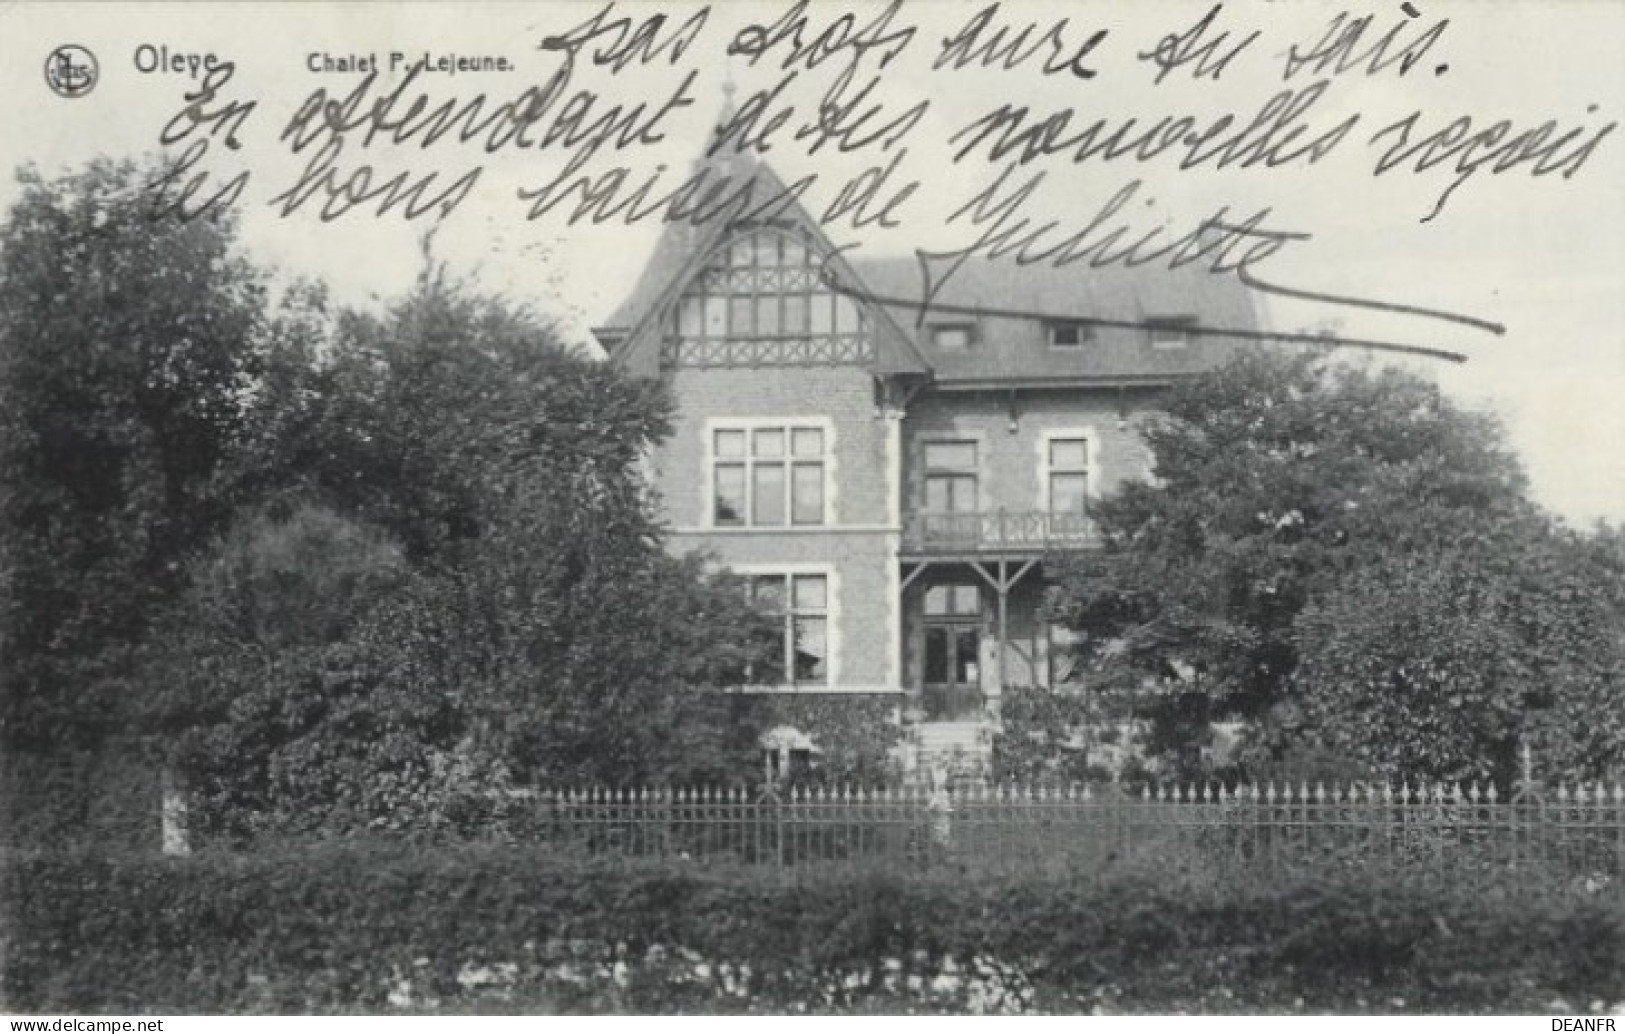 pas trop sure tu sais.
Oleye Chalet P. Lejeune.
En attendant de tes nouvelles reçois
les bons baisers de Juliette
www.delcampe.net
DEANFR